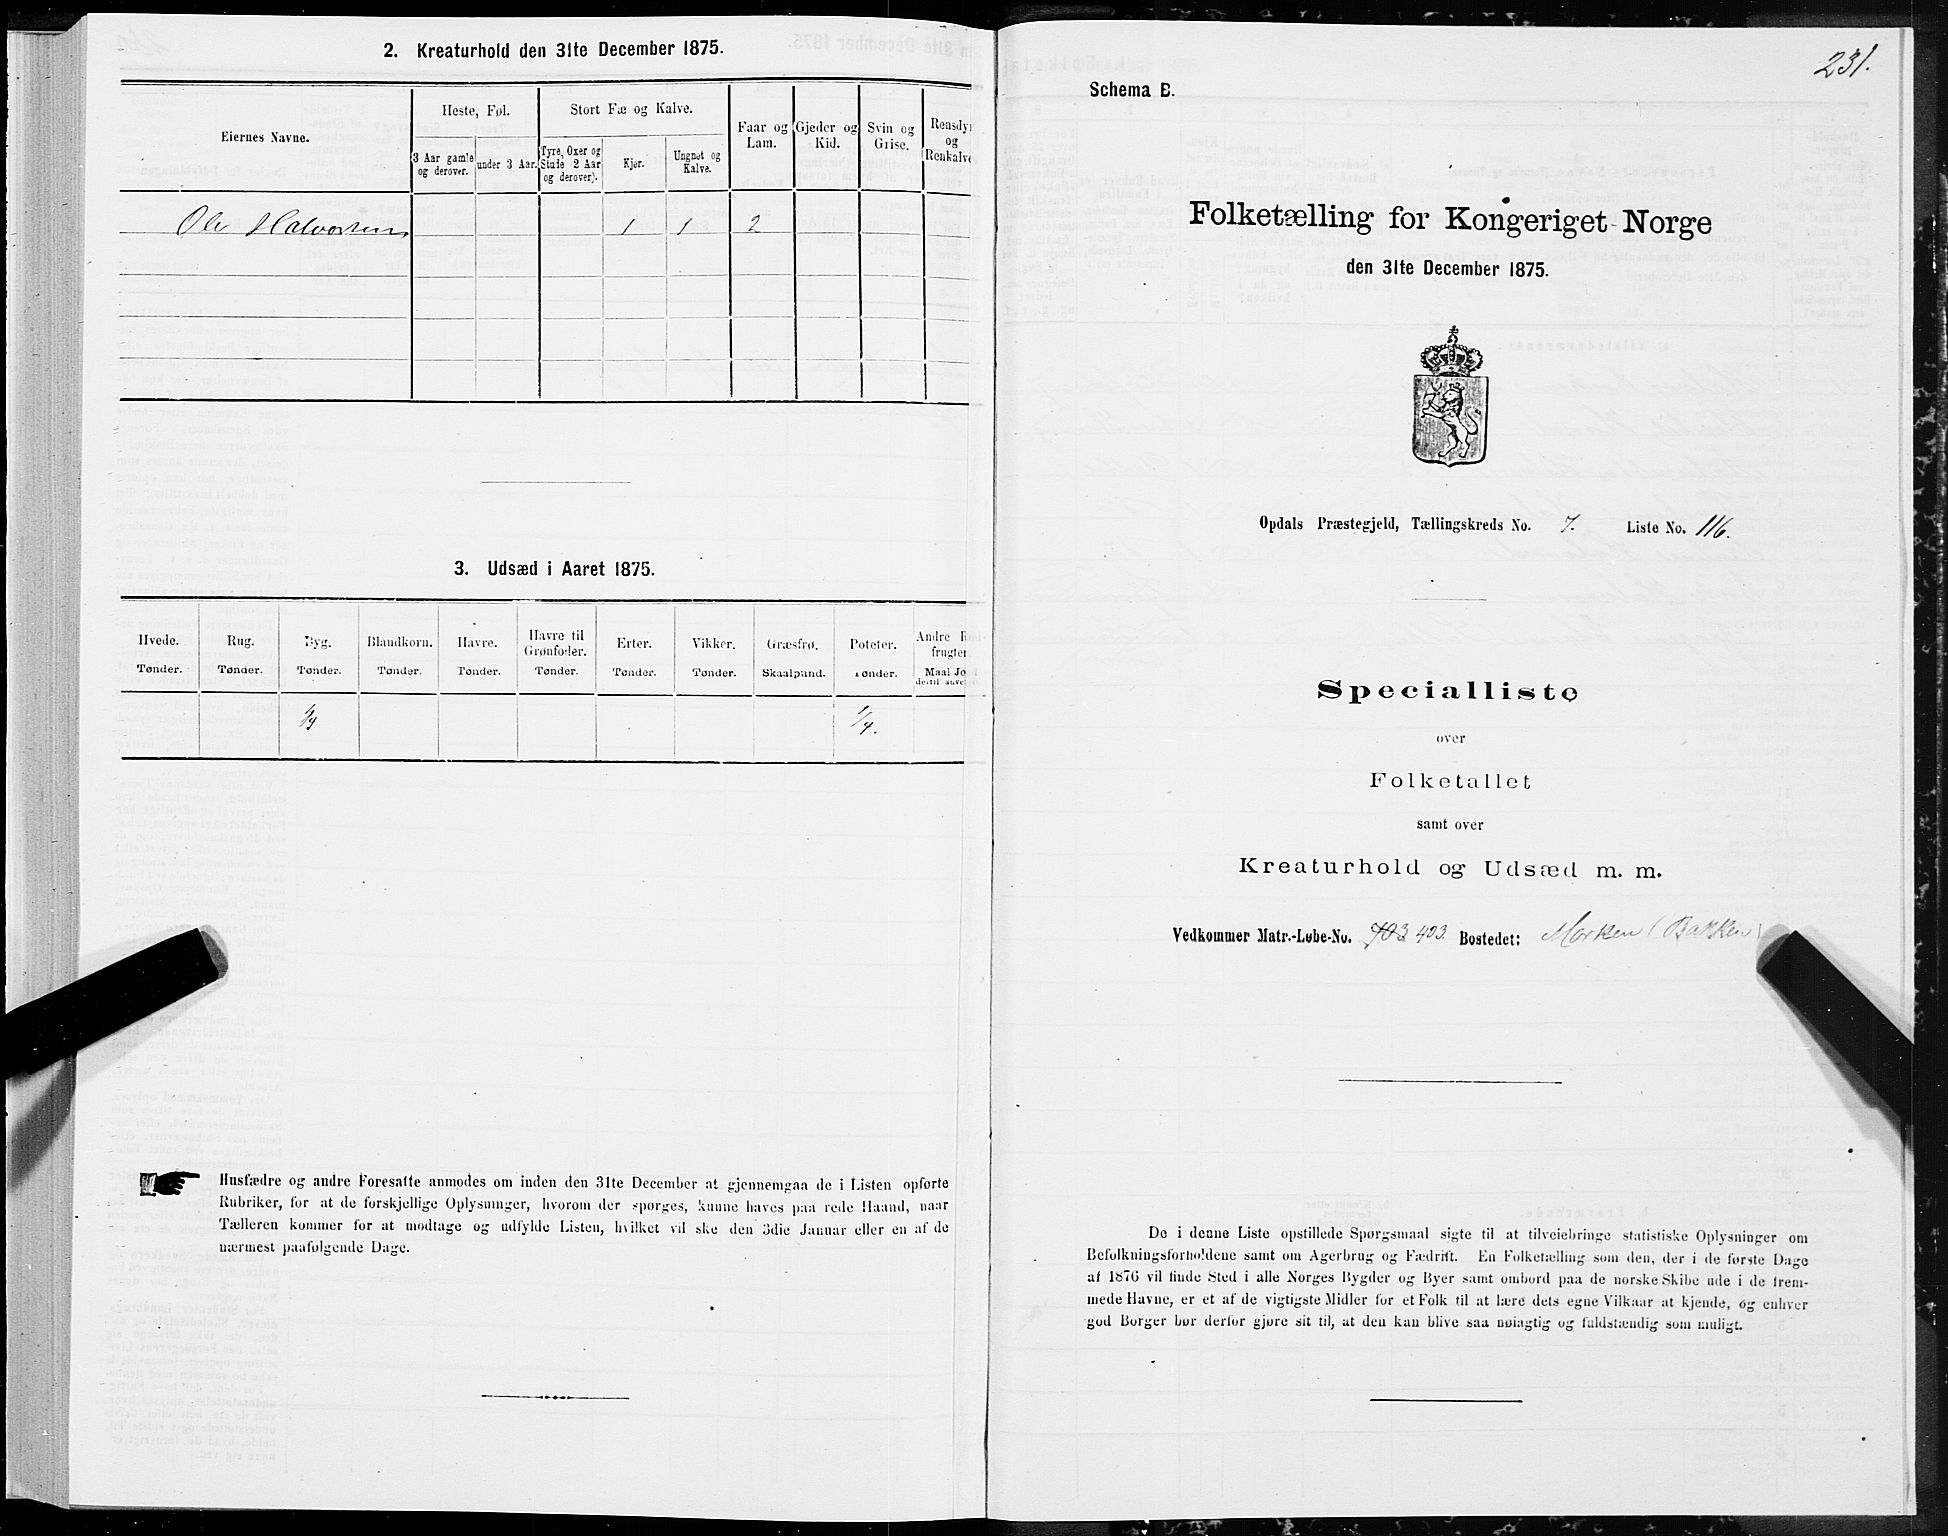 2. Kreaturhold den 31te December 1875.
Eiernes Navne.
Heste, Føl.
3 Aar gamle og derover.
under 3 Aar.
Stort Fæ og Kalve.
Tyre, Oxer og Stude 2 Aar og derover).
Kjør.
Ungnøt og Kalve.
Faar og Lam.
Gjeder og Kid.
Svin og Grise.
Rensdyr og Renkalve
Ole Halvorsen 1 1 2
3. Udsæd i Aaret 1875.
Hvede. Rug. Byg. Blandkorn. Havre. Havre til Grønfoder. Erter. Vikker. Græsfrø. Poteter. Andre
Tønder. Tønder. Tønder. Tønder. Tønder. Tønder. Tønder. Tønder. Skaalpund. Tønder. Maal
1/4.
Husfædre og andre Foresatte anmodes om inden den 31te December at gjennemgaa de i Listen opførte
Rubriker, for at de forskjellige Oplysninger, hvorom der spørges, kunne haves paa rede Haand, naar
Tælleren kommer for at modtage og udfylde Listen, hvilket vil ske den 3die Januar eller en af de
nærmest paafølgende Dage.
231.
Schema B.
Folketælling for Kongeriget Norge
den 31te December 1875.
Opdals Præstegjeld, Tællingskreds No. 7. Liste No. 116.
Specialliste
over
Folketallet
samt over
Kreaturhold og Udsæd m. m.
Vedkommer Matr.-Løbe-No. 703 403 Bostedet: Morken (Bakken)
De i denne Liste opstillede Spørgsmaal sigte til at tilveiebringe statistiske Oplysninger om
Befolkningsforholdene samt om Agerbrug og Fædrift. En Folketælling som den, der i de første Dage
af 1876 vil finde Sted i alle Norges Bygder og Byer samt ombord paa de norske Skibe ude i de frem-
mede Havne, er et af de vigtigste Midler for et Folk til at lære dets egne Vilkaar at kjende, og enhver
god Borger bør derfor gjøre sit til, at den kan blive saa nøiagtig og fuldstændig som muligt.